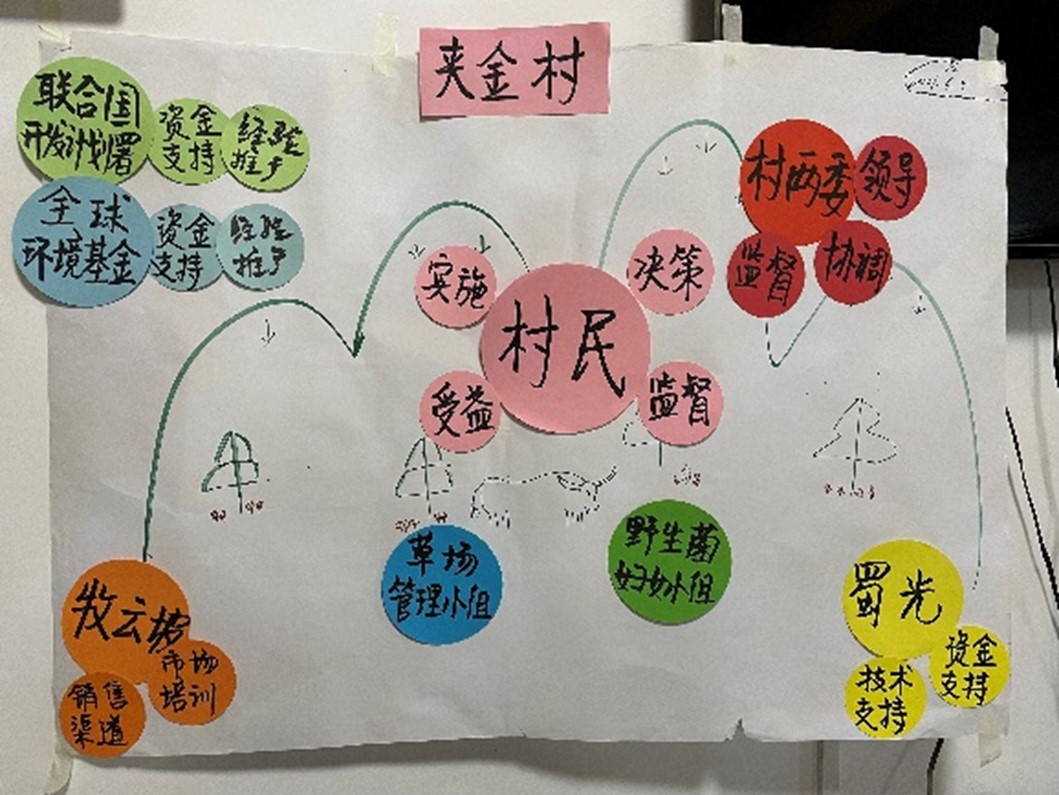 夹金村
联合国
开发计划署
资金
支持
经验
推广
全球
环境基金
资金
支持
经验
推广
村两委
领导
监督
协调
实施
决策
村民
受益
监督
草场
管理小组
野生菌
妇女小组
牧云坡
市场
培训
销售
渠道
蜀光
技术
支持
资金
支持